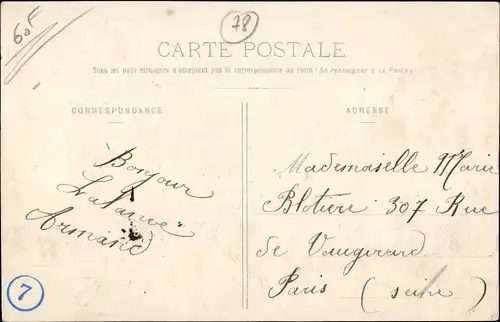 60F
78
CARTE POSTALE
Tous les pays étrangers n'acceptent pas la correspondance au recto (Se renseigner à la Poste)
CORRESPONDANCE
ADRESSE
Bonjour
Armand
Mademoiselle Marie
Blotiere 307 Rue
de Vaugirard
Paris (seine)
7